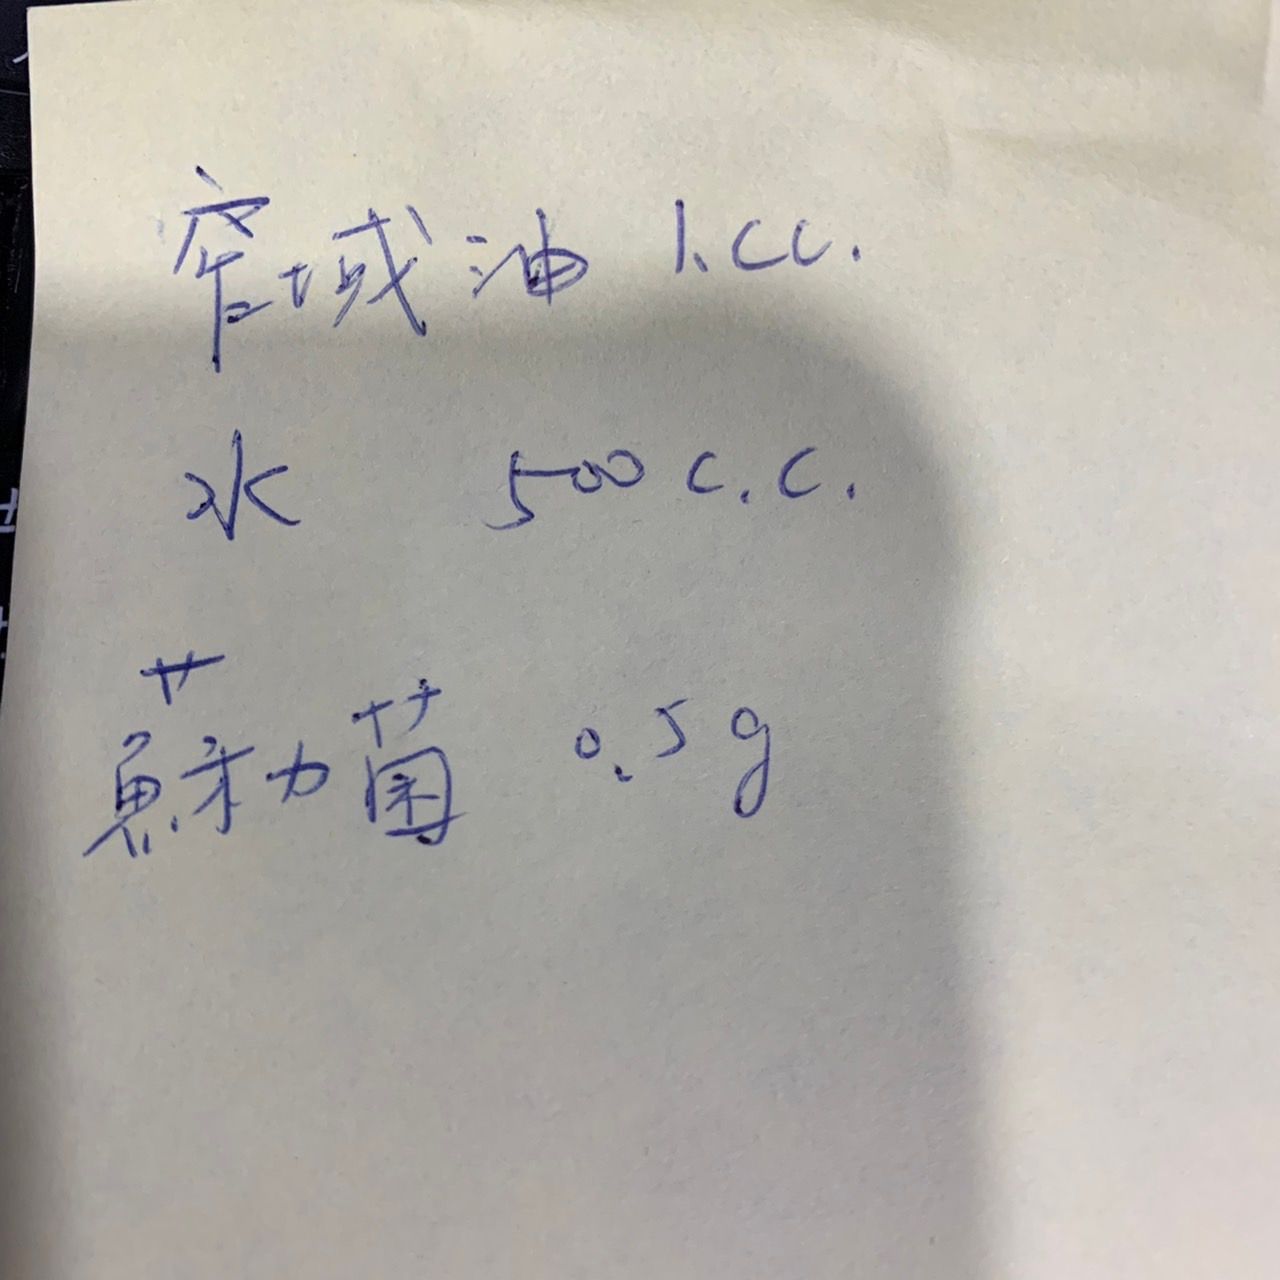 窄域油 1.cc.
水 500 c.c.
蘇力菌 0.5g